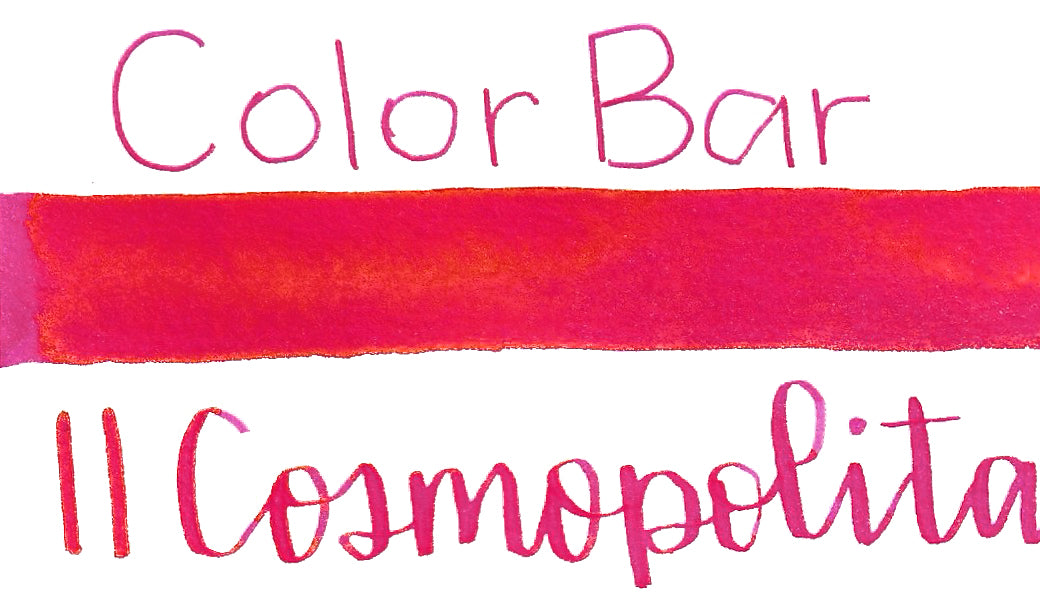 Color Bar
11 Cosmopolita